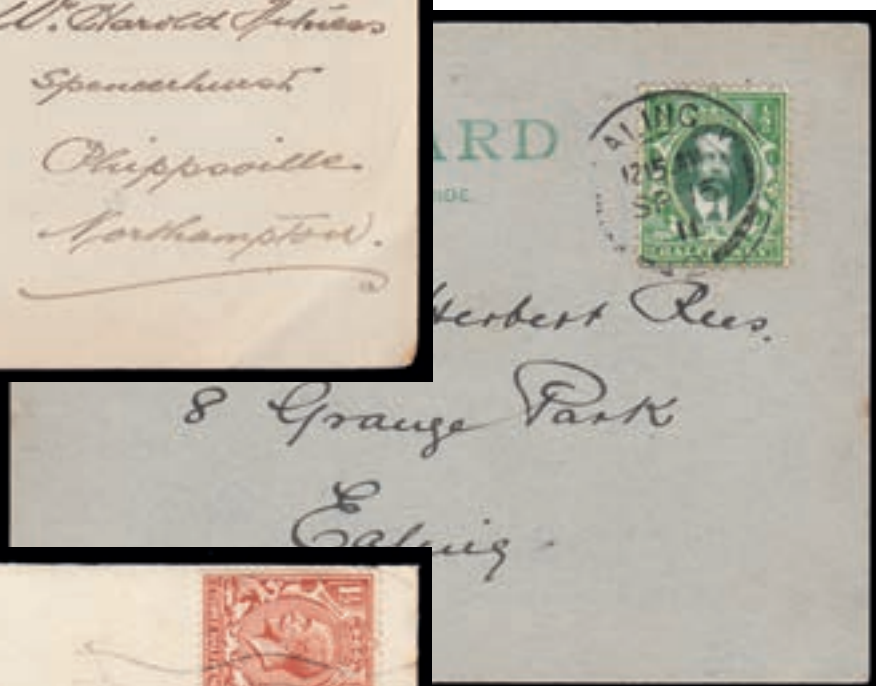 Spencerhurst
Phippsville
Northampton.
ARD
IDE.
ALING
12 15
SP
11
Herbert Rees.
8 Grange Park
Ealing.